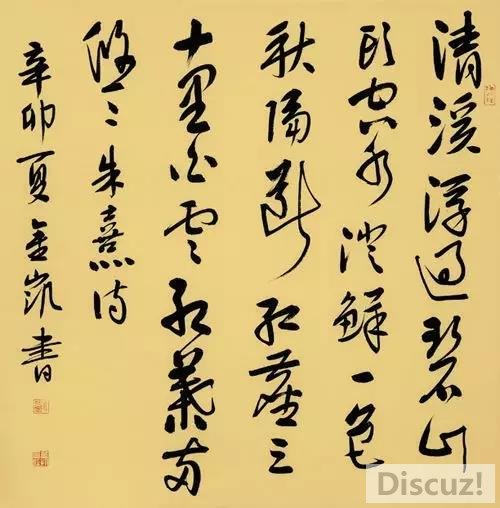 清溪流過碧山
頭空水澄鮮一色
秋隔斷紅塵三
十里白雲紅葉兩
悠々朱熹詩
辛卯夏金凱書
Discuz!